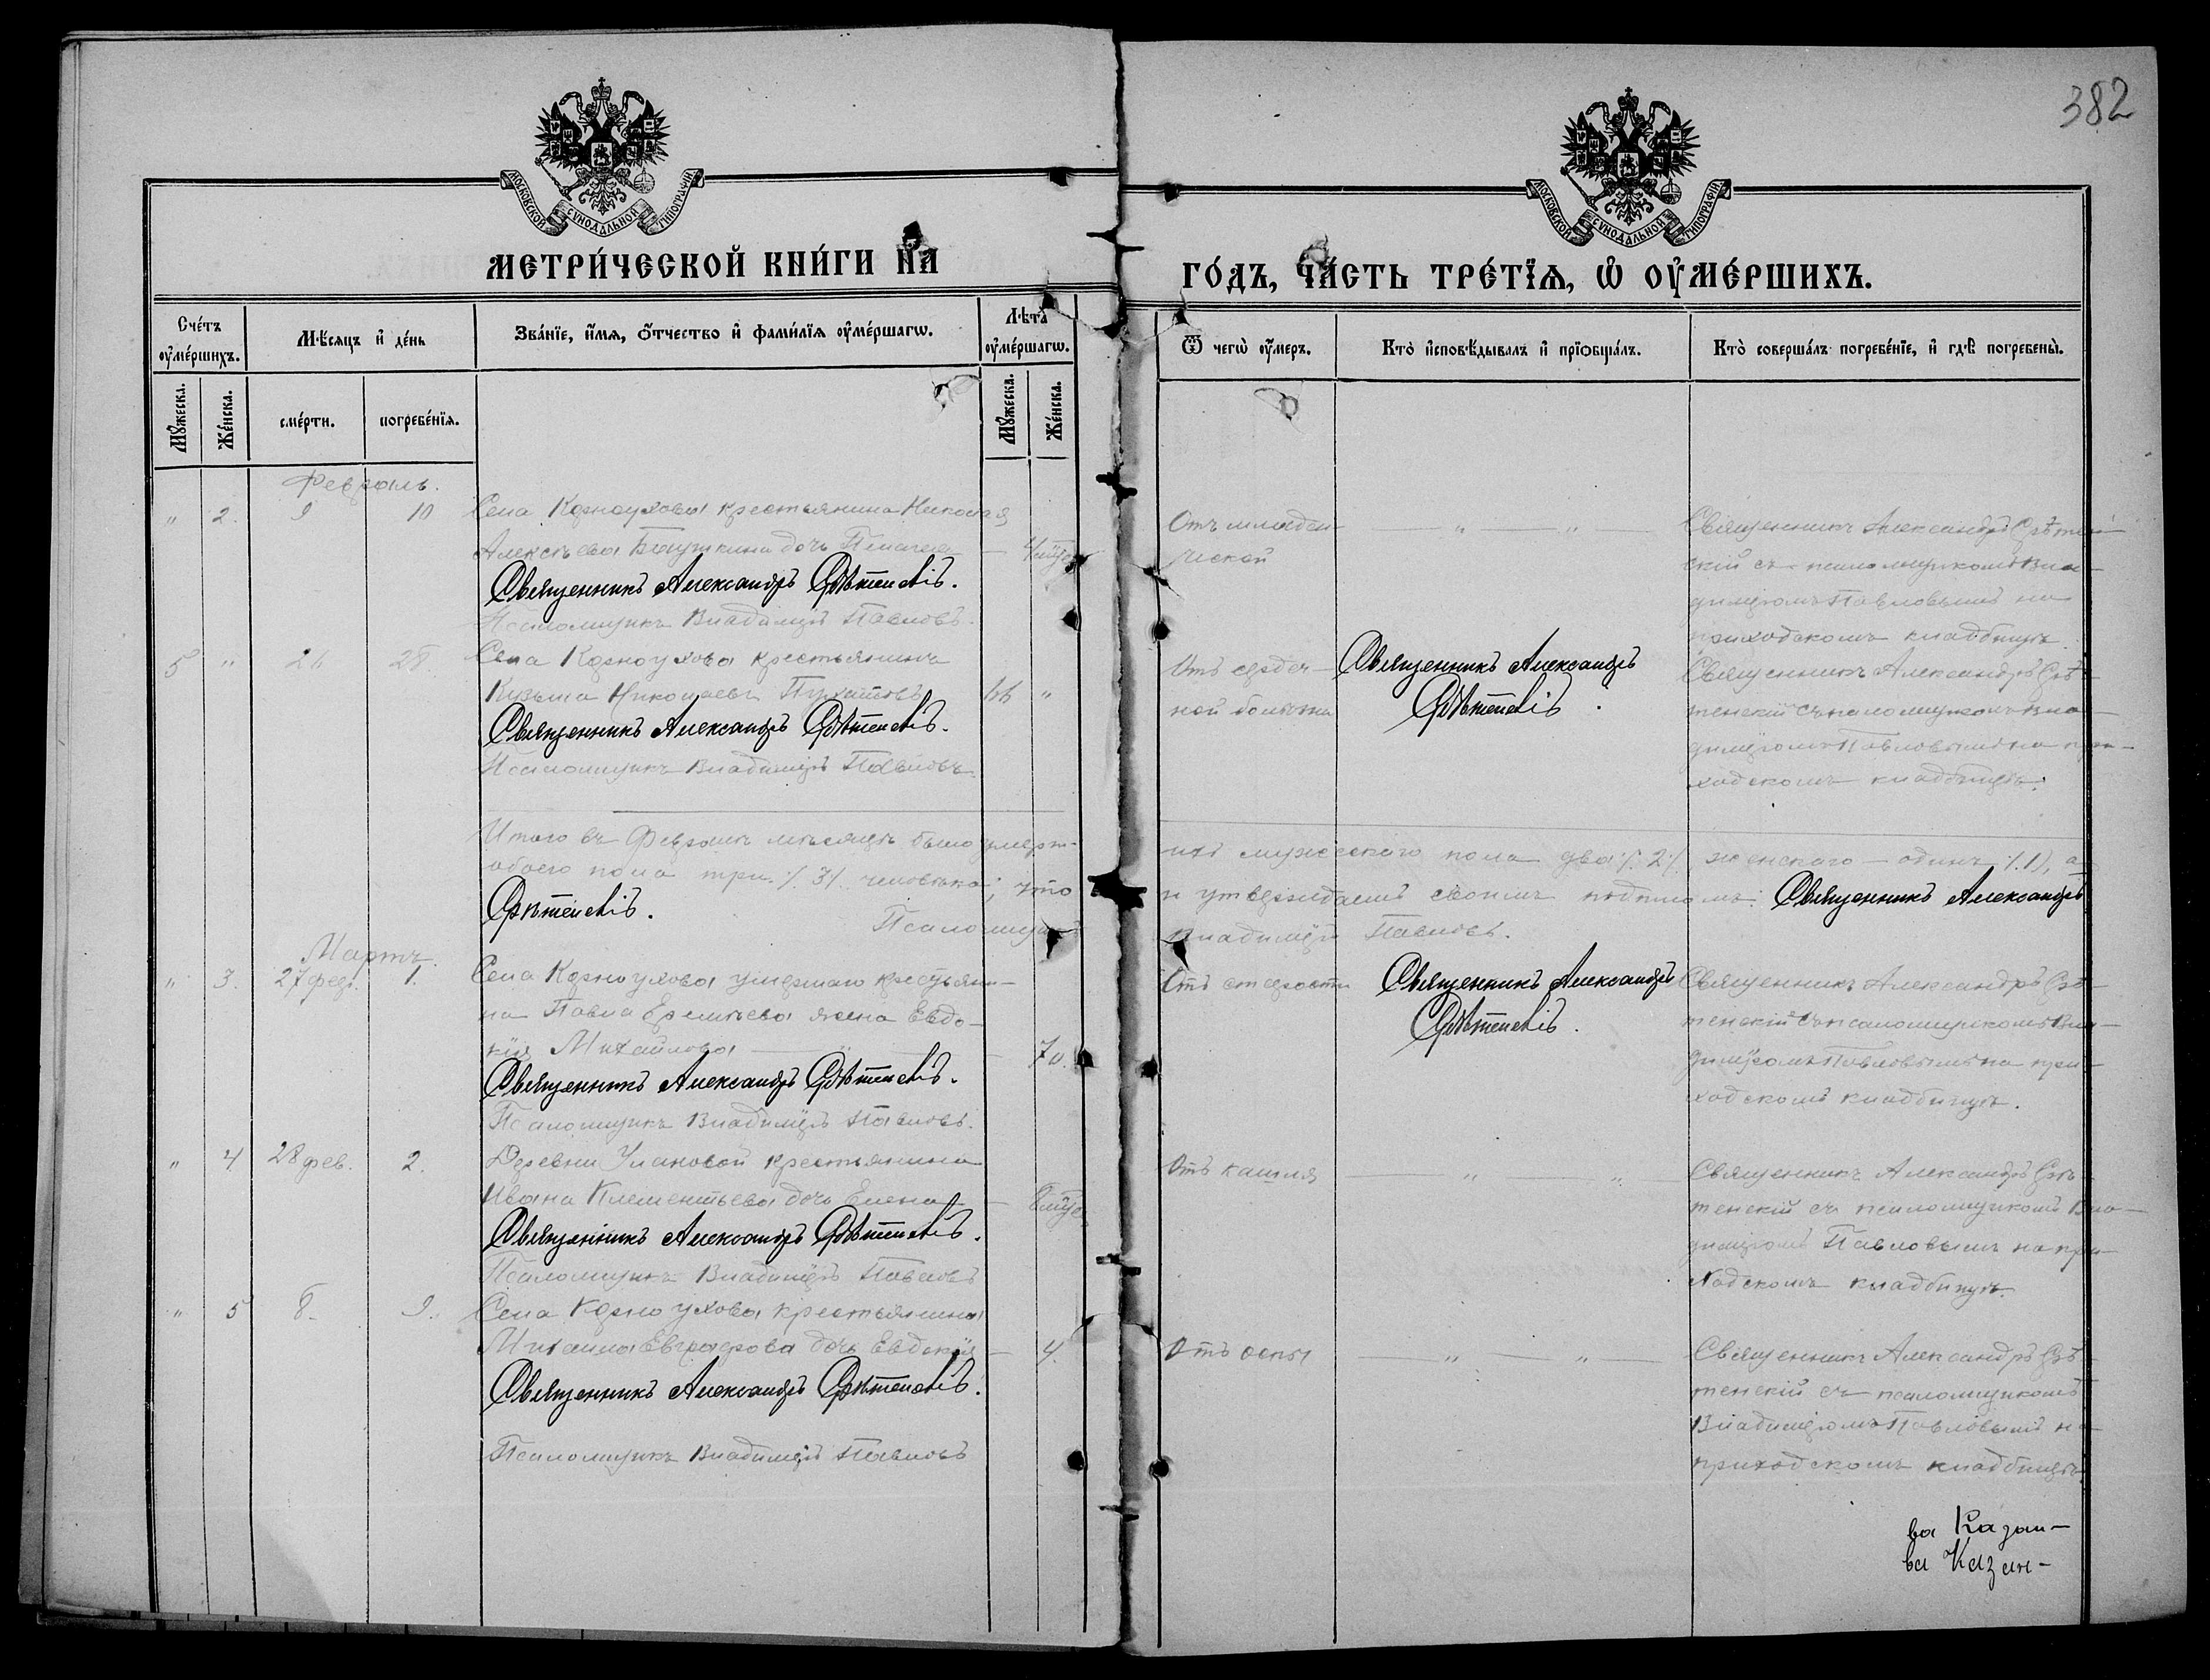 382
МОСКОВСКОЙ СѴНОДАЛЬНОЙ ТИПОГРАФІИ
МОСКОВСКОЙ СѴНОДАЛЬНОЙ ТИПОГРАФІИ
МЕТРИ́ЧЕСКОЙ КНИ́ГИ НА
ГО́ДЪ, ЧА́СТЬ ТРЕ́ТІѦ, Ѡ҆ ОУ҆МЕ́РШИХЪ.
Сче́тъ оу҆ме́ршихъ.
Мѣ́сѧцъ и҆ де́нь
Зва́нїе, и҆́мѧ, ѻ҆́тчество и҆ фами́лїѧ оу҆ме́ршагѡ.
Лѣ́та оу҆ме́ршагѡ.
Ѿ чегѡ̀ оу҆́меръ.
Кто̀ и҆сповѣ́дывалъ и҆ прїѡбща́лъ.
Кто̀ соверша́лъ погребе́нїе, и҆ гдѣ̀ погребены̀.
Мꙋ́жеска.
Же́нска.
сме́рти.
погребе́нїѧ.
Мꙋ́жеска.
Же́нска.
Февраль.
" 2. 9 10 Села Корноухова крестьянина Николая
Алексѣева дочь
Священникъ Александръ Срѣтенскій.
Псаломщикъ Владиміръ Павловъ.
Отъ младен-
ческой
— " — " —
Священникъ Александръ Срѣтен-
скій съ псаломщикомъ Вла-
диміромъ Павловымъ на
приходскомъ кладбищѣ.
5 " 26 28. Села Корноухова крестьянинъ
Кузьма Николаевъ 66 "
Священникъ Александръ Срѣтенскій.
Псаломщикъ Владиміръ Павловъ.
Отъ сердеч-
ной болѣзни
Священникъ Александръ
Срѣтенскій.
Священникъ Александръ Срѣ-
тенскій съ псаломщикомъ Вла-
диміромъ Павловымъ на при-
ходскомъ кладбищѣ.
Итого въ Февралѣ мѣсяцѣ было умерш-
ихъ мужескаго пола два /. 2 /. женскаго — одинъ /. 1), а
обоего пола три ./. 3/. человѣка; что
и утверждаемъ своимъ подписомъ: Священникъ Александръ
Срѣтенскій.
Псаломщикъ
Владиміръ Павловъ.
Мартъ.
" 3. 27 февр. 1. Села Корноухова умершаго крестьяни-
на Павла Еремѣева жена Евдо-
кія Михайлова — " — 70.
Священникъ Александръ Срѣтенскій.
Псаломщикъ Владиміръ Павловъ.
Отъ старости
Священникъ Александръ
Срѣтенскій.
Священникъ Александръ Срѣ-
тенскій съ псаломщикомъ Вла-
диміромъ Павловымъ на при-
ходскомъ кладбищѣ.
" 4 28 фев. 2. Деревни Улановой крестьянина
Ивана Клементьева дочь Елена —
Священникъ Александръ Срѣтенскій.
Псаломщикъ Владиміръ Павловъ
Отъ кашля
— " — " —
Священникъ Александръ Срѣ-
тенскій съ псаломщикомъ Вла-
диміромъ Павловымъ на при-
ходскомъ кладбищѣ.
" 5 8. 9. Села Корноухова крестьянина
Михаила Евграфова дочь Евдокія — 4.
Священникъ Александръ Срѣтенскій.
Псаломщикъ Владиміръ Павловъ
Отъ оспы
— " — " —
Священникъ Александръ Срѣ-
тенскій съ псаломщикомъ
Владиміромъ Павловымъ на
приходскомъ кладбищѣ
ва Казан-
ва Казан-